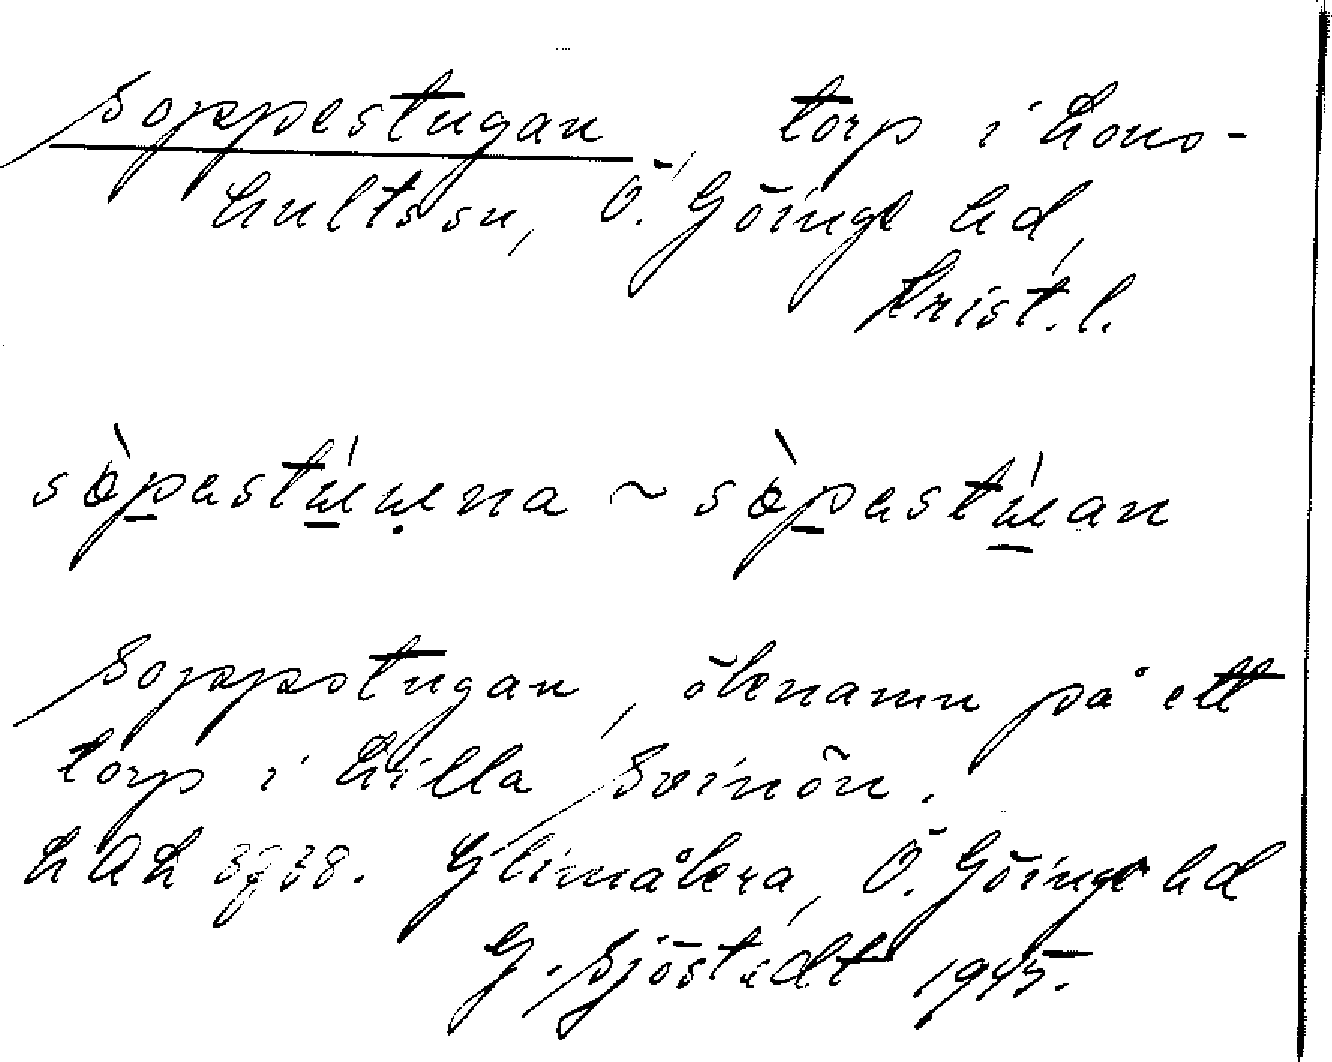 Soppestugan, torp i Lons-
hultssn, Ö. Göinge hd,
Krist. l.
sòpastúuna ~ sòpastúan
Soppstugan, öknamn på ett
torp i Lilla Svinön.
LAL 3938. Glimåkra, Ö. Göinge hd
G. Sjöstedt 1945.